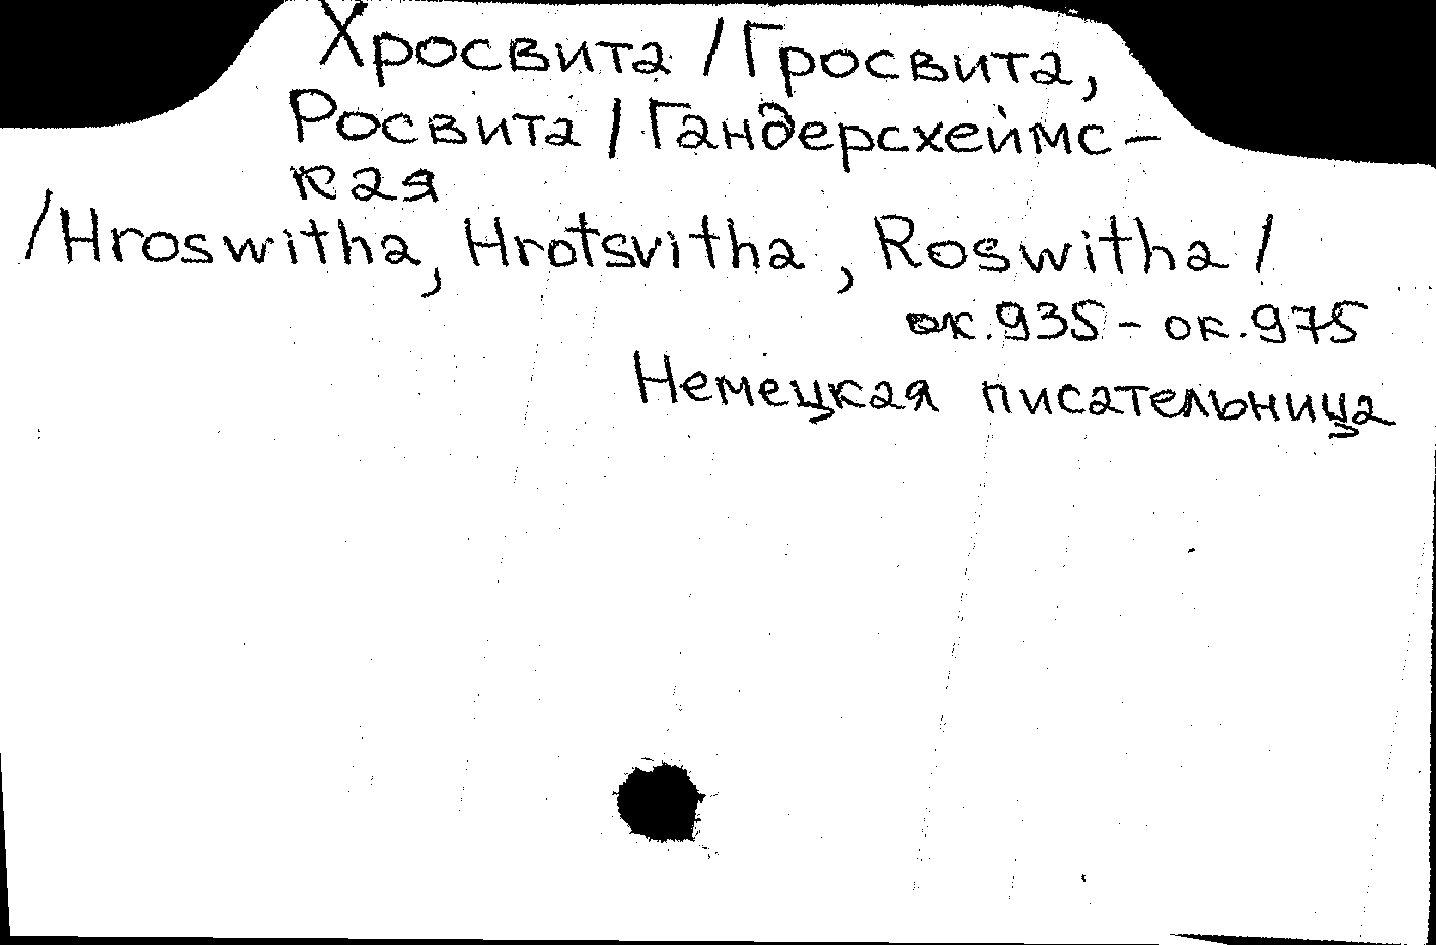 Хросвита /Гросвита,
Росвита / Гандерсхеймс-
кая
/Hroswitha, Hrotsvitha, Roswitha /
ок. 935 - ок. 975
Немецкая писательница